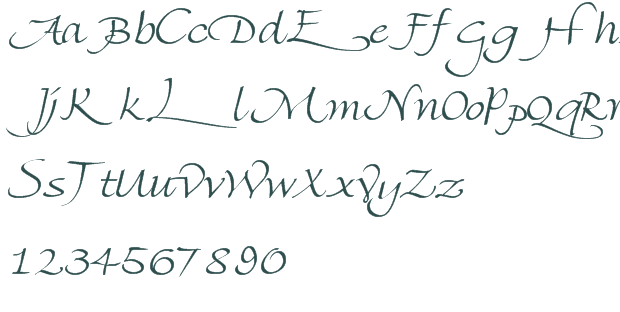 Aa Bb Cc Dd E e Ff Gg H h
Jj K k L l Mm Nn Oo Pp Qq Rr
Ss T t Uu Vv Ww Xx Yy Zz
1 2 3 4 5 6 7 8 9 0